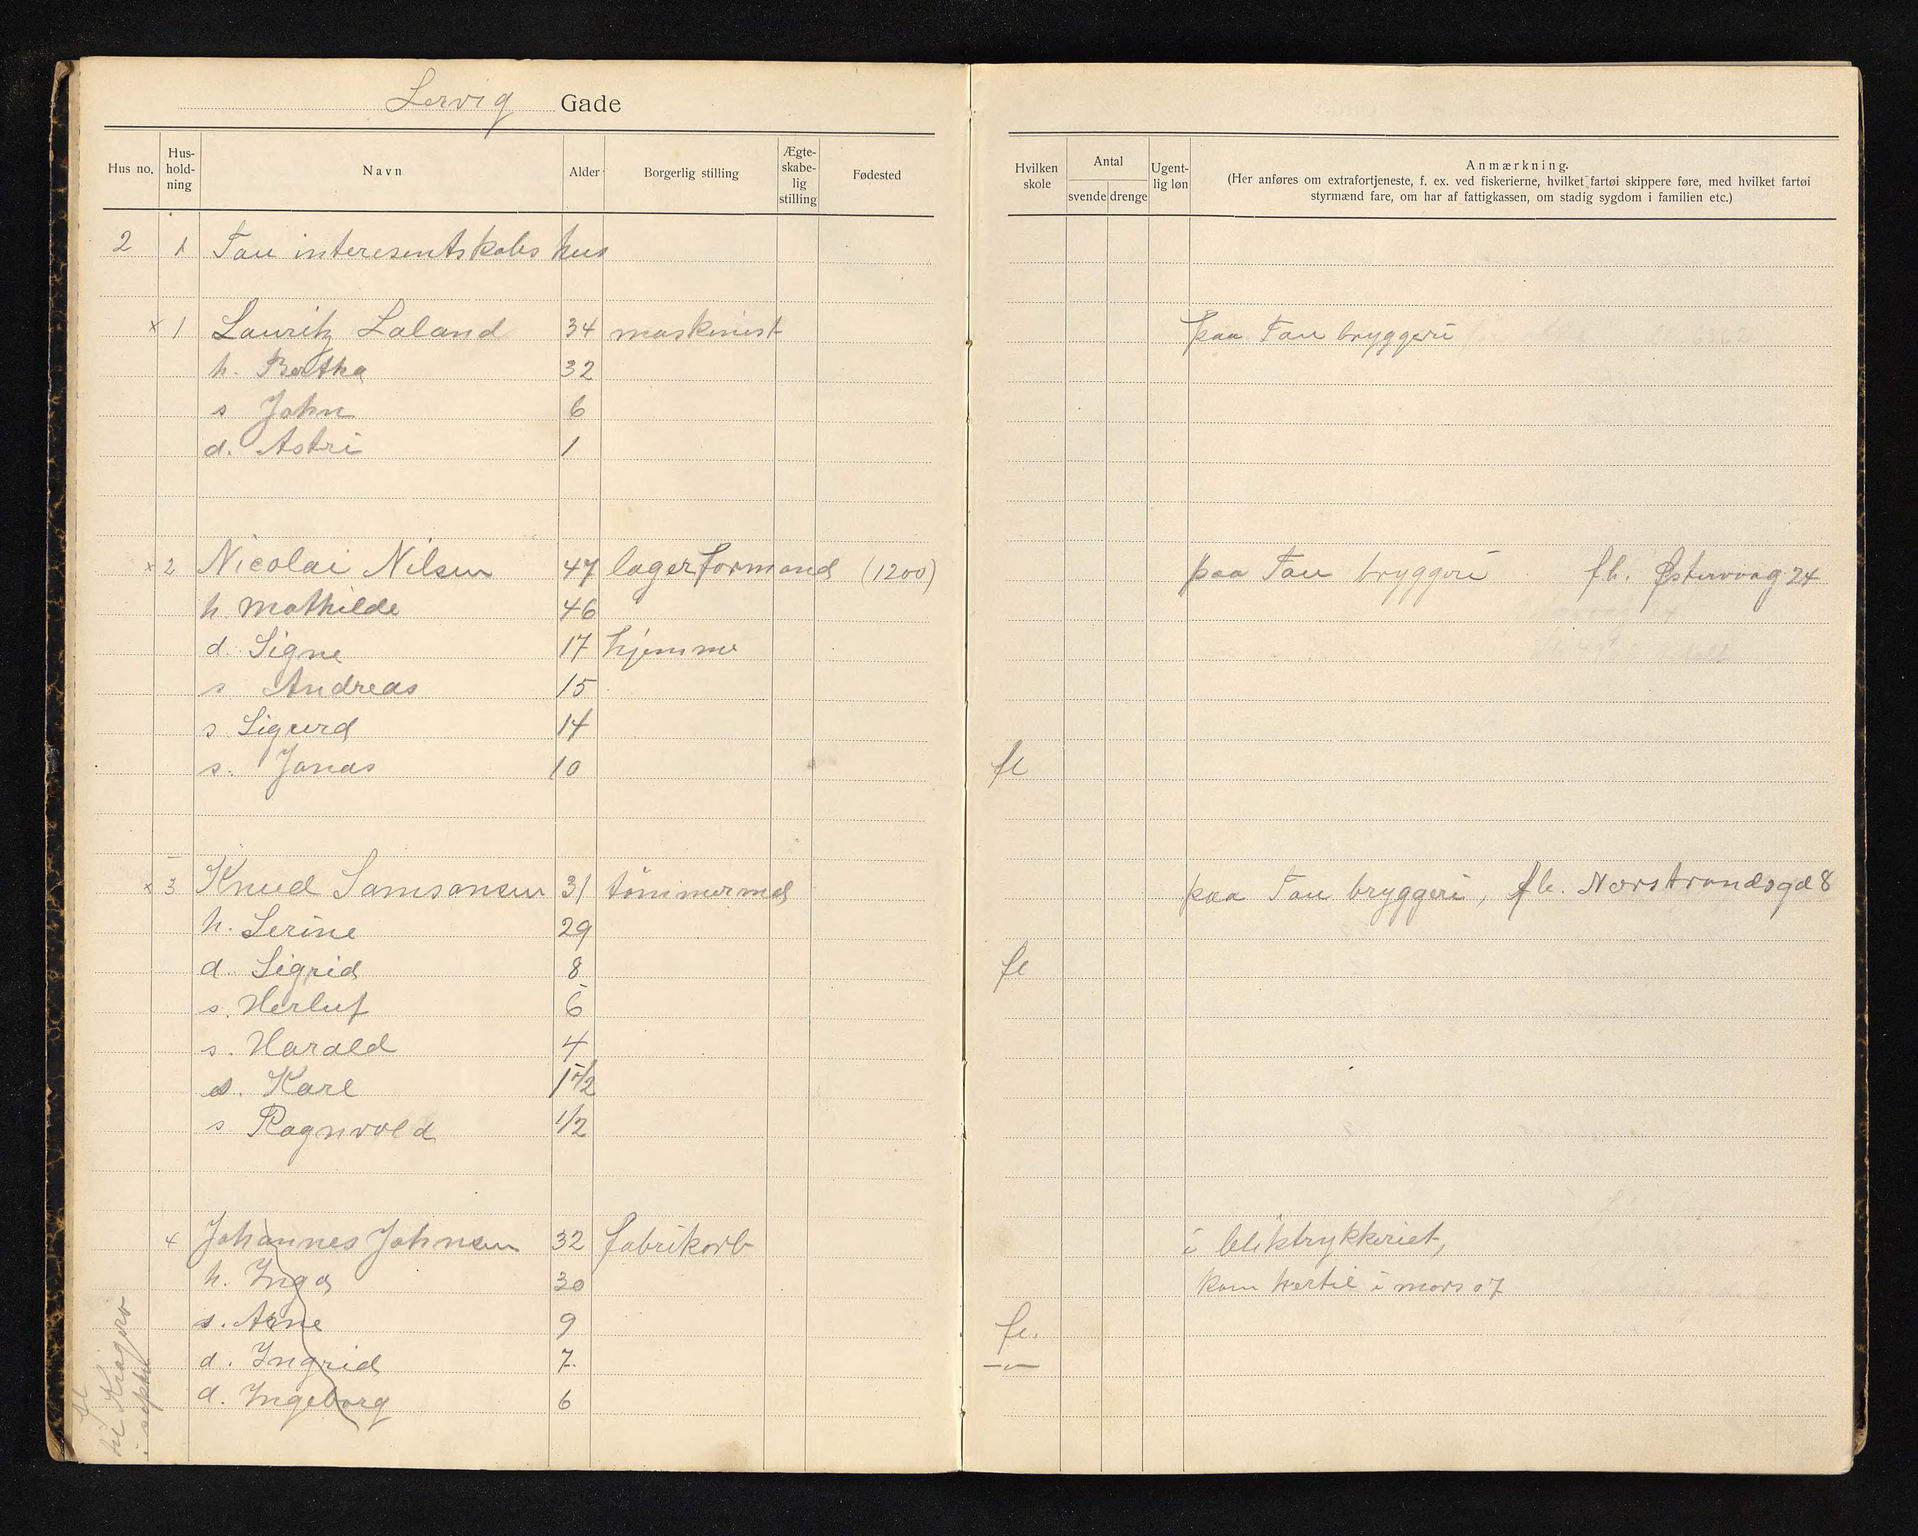 Lervig Gade
Hus no. Hus- hold- ning Navn Alder Borgerlig stilling Ægte- skabe- lig stilling Fødested Hvilken skole Antal svende drenge Ugent- lig løn Anmærkning.
(Her anføres om extrafortjeneste, f. ex. ved fiskerierne, hvilket fartøi skippere føre, med hvilket fartøi
styrmænd fare, om har af fattigkassen, om stadig sygdom i familien etc.)
2 1 Tou interesentskabs hus
x 1 Lauritz Laland 34 maskinist paa Tou bryggeri
h. Bertha 32
s John 6
d. Astri 1
x 2 Nicolai Nilsen 47 lagerformand (1200) paa Tou bryggeri fh. Østervaag 24
h. Mathilde 46
d. Signe 17 hjemme
s Andreas 15
s Sigurd 14
s. Jonas 10 fl
x 3 Knud Samsonsen 31 tömmermd paa Tou bryggeri, fh. Norstrandsgd 8
h. Serine 29
d. Sigrid 8 fl
s. Herluf 6
s. Harald 4
s. Karl 1 1/2
s Ragnvald 1/2
4 Johannes Johnsen 32 fabrikarb i bliktrykkeriet,
h. Inga 30 kom hertil i mars 07
s. Arne 9 fl.
d. Ingrid 7 -"-
d. Ingeborg 6
fl
til Kragerø
i septbr